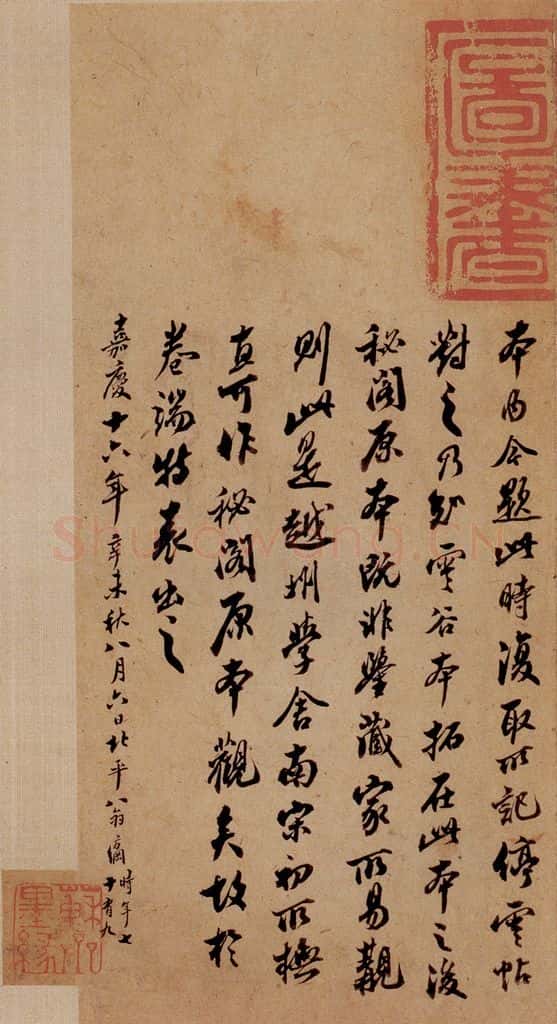 本内今题此時復取所記停雲帖
對之乃知雪谷本拓在此本之後
秘阁原本既非鑒藏家所易觀
則此是越州學舍南宋初所橅
直可作秘阁原本觀矣故於
卷端特表出之
嘉慶十六年辛未秋八月六日北平八翁
時年七
十有九
蘇
墨緣